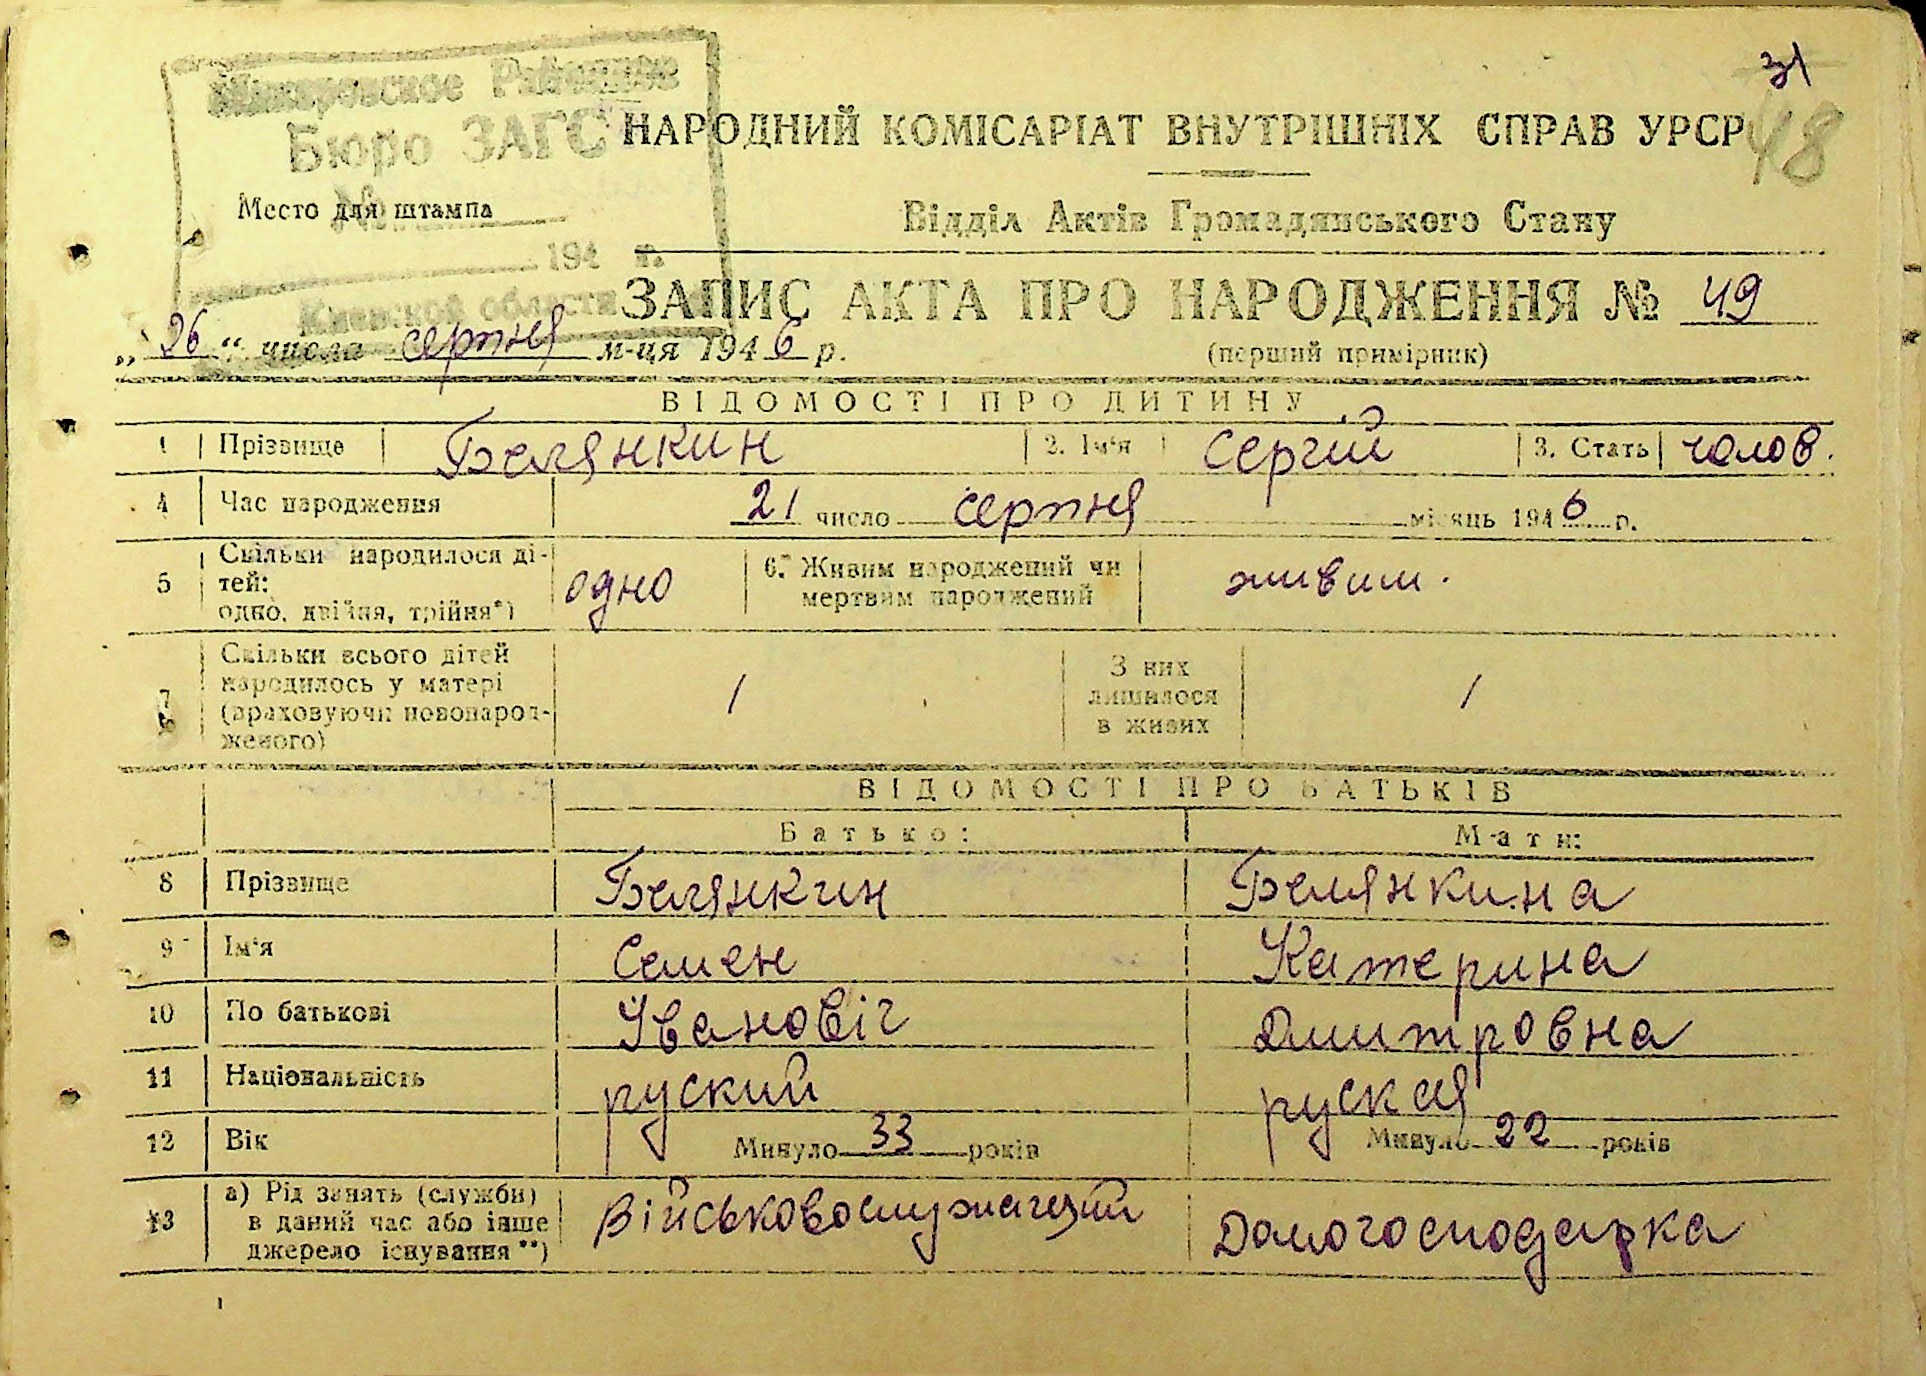 31
48
Макаровское Районное
Бюро ЗАГС
№
194 г.
Киевской области
НАРОДНИЙ КОМІСАРІАТ ВНУТРІШНІХ СПРАВ УРСР
Место для штампа
Відділ Актів Громадянського Стану
ЗАПИС АКТА ПРО НАРОДЖЕННЯ № 49
„26“ числа серпня м-ця 1946 р.
(перший примірник)
ВІДОМОСТІ ПРО ДИТИНУ
1 Прізвище Белянкин 2. Ім'я Сергій 3. Стать чолов.
4 Час народження 21 число серпня місяць 1946 р.
5 Скільки народилося ді-
тей:
одно, двійня, трійня*) одно 6. Живим народжений чи
мертвим народжений живим.
7 Скільки всього дітей
народилось у матері
(враховуючи новонарод-
женого) 1 З них
лишилося
в живих 1
ВІДОМОСТІ ПРО БАТЬКІВ
Батько: Мати:
8 Прізвище Белянкин Белянкина
9 Ім'я Семен Катерина
10 По батькові Івановіч Дмитровна
11 Національність руский руская
12 Вік Минуло 33 років Минуло 22 років
13 а) Рід занять (служби)
в даний час або інше
джерело існування**) Військовослужачий Домогосподарка